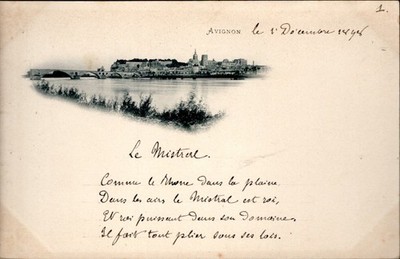 1.
AVIGNON le 1er Décembre 1898
Le Mistral.
Comme le Rhône dans la plaine
Dans les airs le Mistral est roi,
Et roi puissant dans son domaine,
Il fait tout plier sous ses lois.